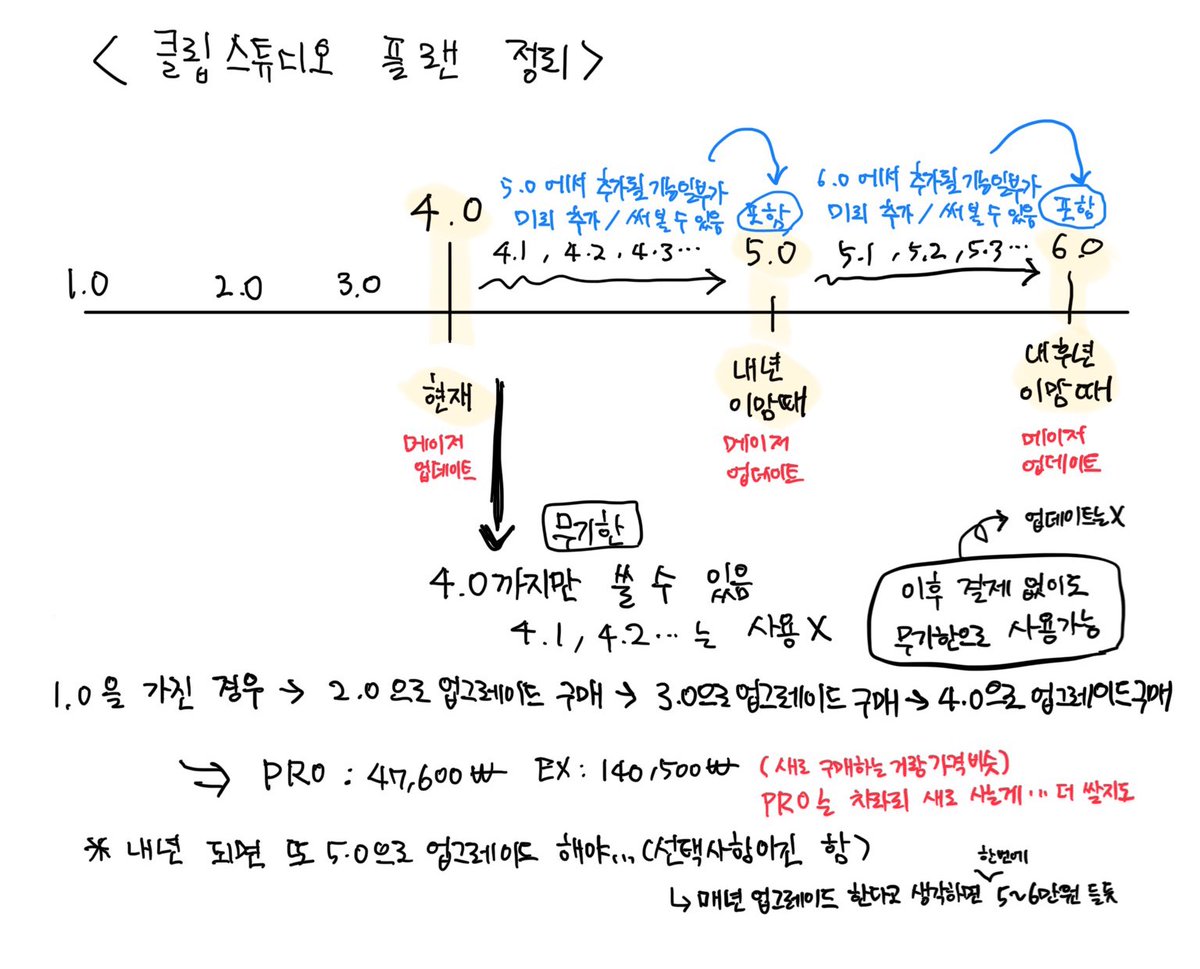 < 클립스튜디오 플랜 정리 >
5.0 에서 추가될 기능일부가
미리 추가 / 써 볼 수 있음
포함
6.0 에서 추가될 기능일부가
미리 추가 / 써 볼 수 있음
포함
1.0 2.0 3.0 4.0 4.1, 4.2, 4.3... 5.0 5.1, 5.2, 5.3... 6.0
현재
메이저
업데이트
내년
이맘때
메이저
업데이트
내후년
이맘때
메이저
업데이트
무기한
4.0까지만 쓸 수 있음
4.1, 4.2...는 사용 X
업데이트는 X
이후 결제 없이도
무기한으로 사용가능
1.0을 가진 경우 → 2.0으로 업그레이드 구매 → 3.0으로 업그레이드 구매 → 4.0으로 업그레이드 구매
PRO : 47,600₩ EX : 140,500₩
(새로 구매하는거랑 가격비슷)
PRO는 차라리 새로 사는게... 더 쌀지도
※ 내년 되면 또 5.0으로 업그레이드 해야... (선택사항이긴 함)
한번에
↳ 매년 업그레이드 한다고 생각하면 5~6만원 들듯